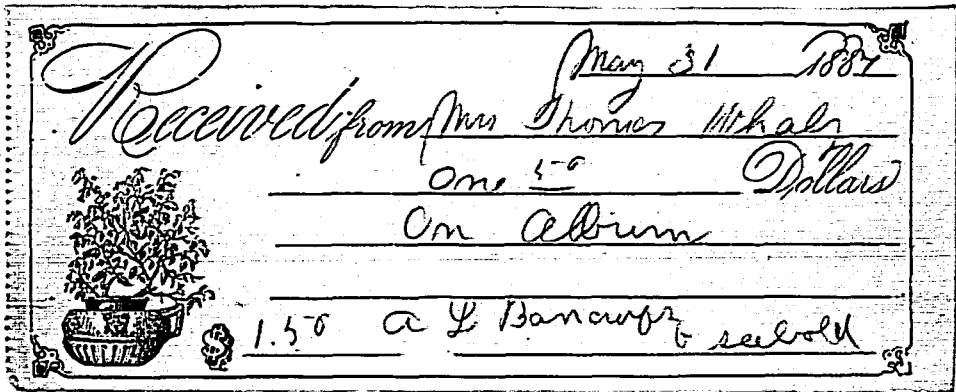 May 31 1887
Received from Mrs Thomas Whaley
One 50 Dollars
On Album
$ 1.50 A L Bancroft